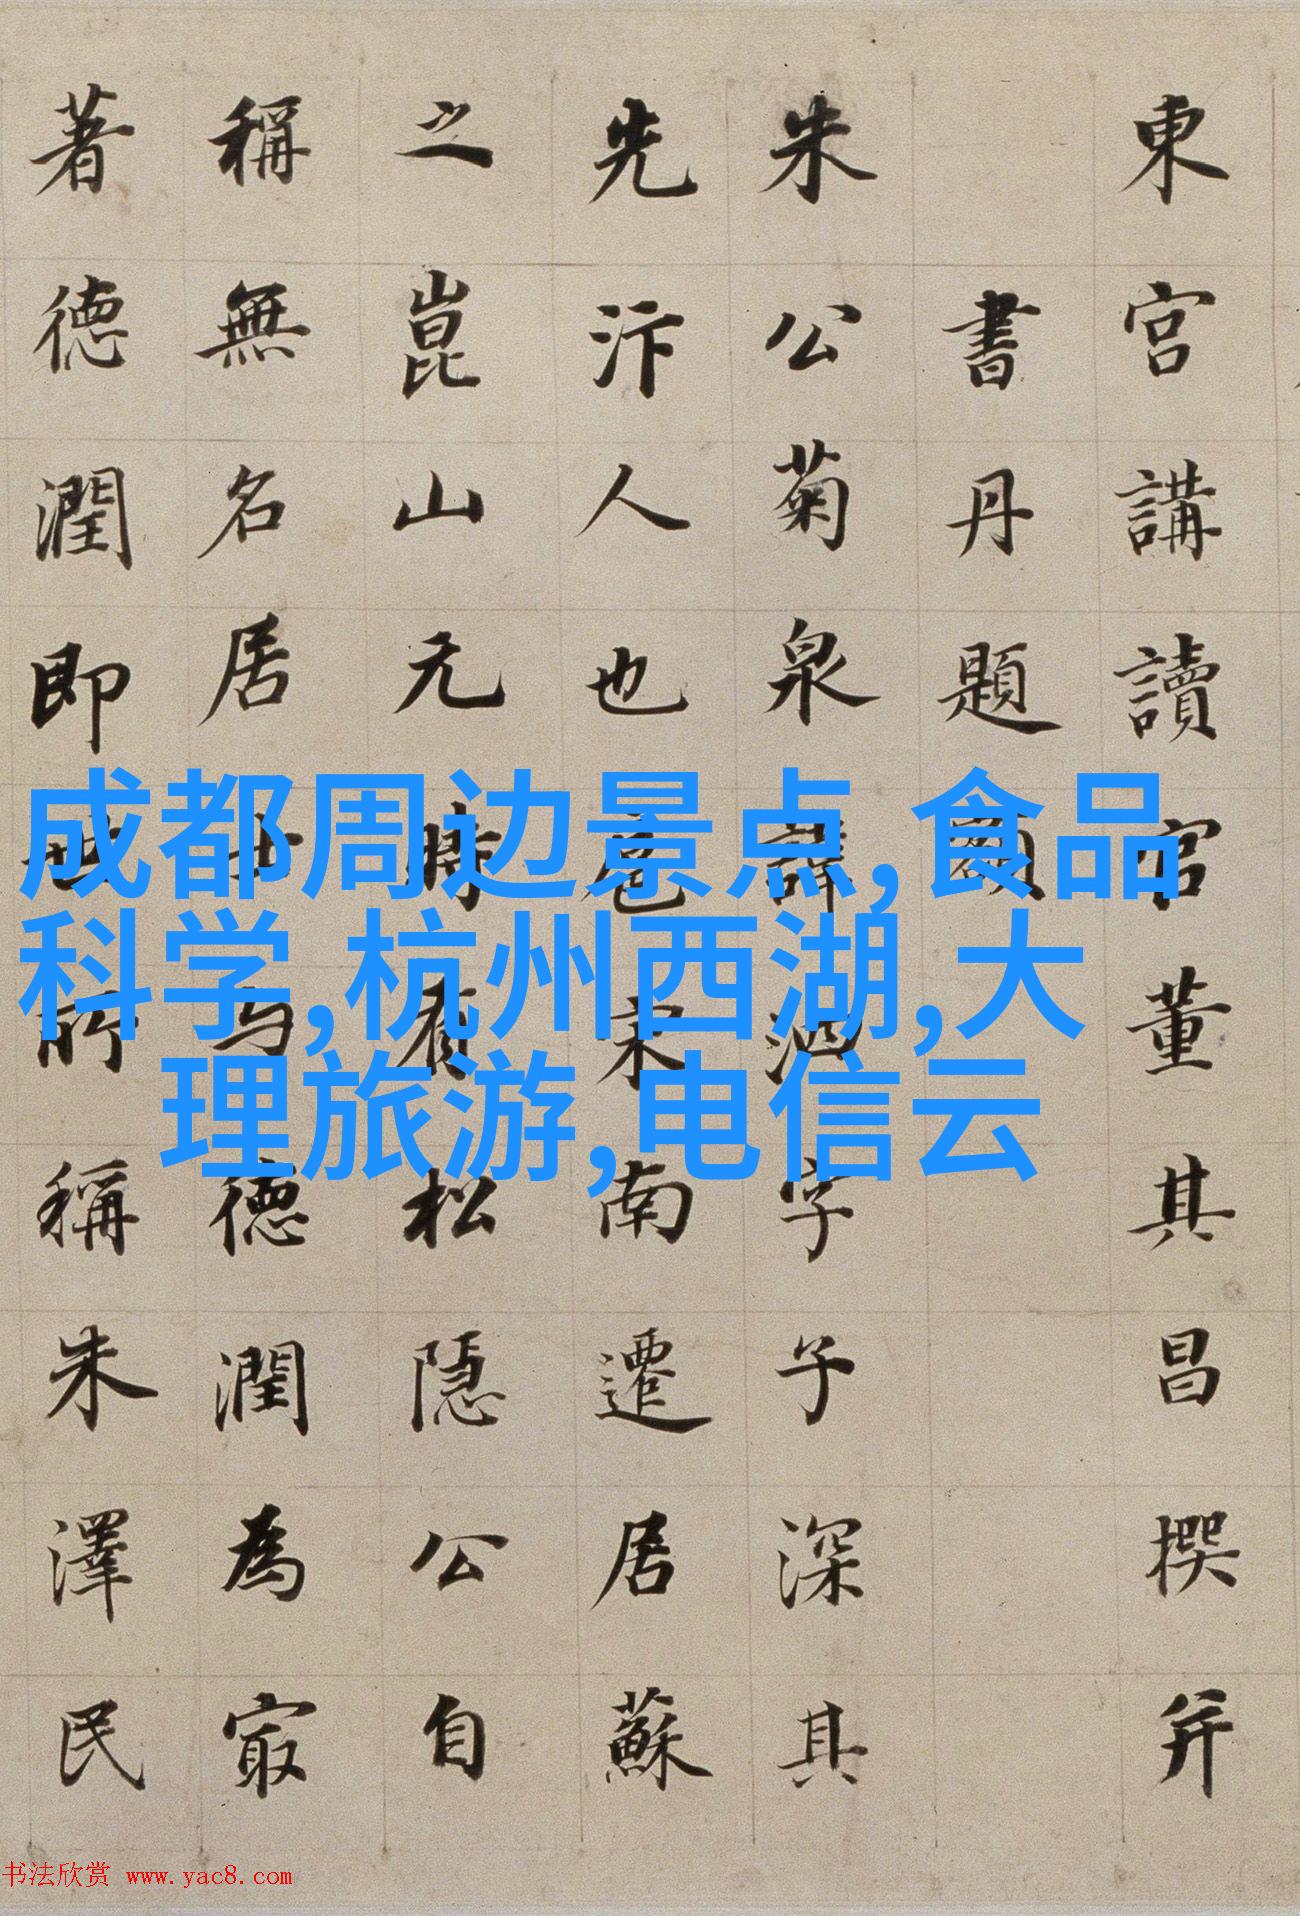 東宮講讀官董其昌撰并
書丹題額
朱公菊泉諱泗字子深其
先汴人也扈宋南遷居蘇
之崑山元時有松隱公自
稱無名居士德潤為㝡
著德潤即世所稱朱澤民
成都周边景点,食品
科学,杭州西湖,大
理旅游,电信云
书法欣赏 www.yac8.com